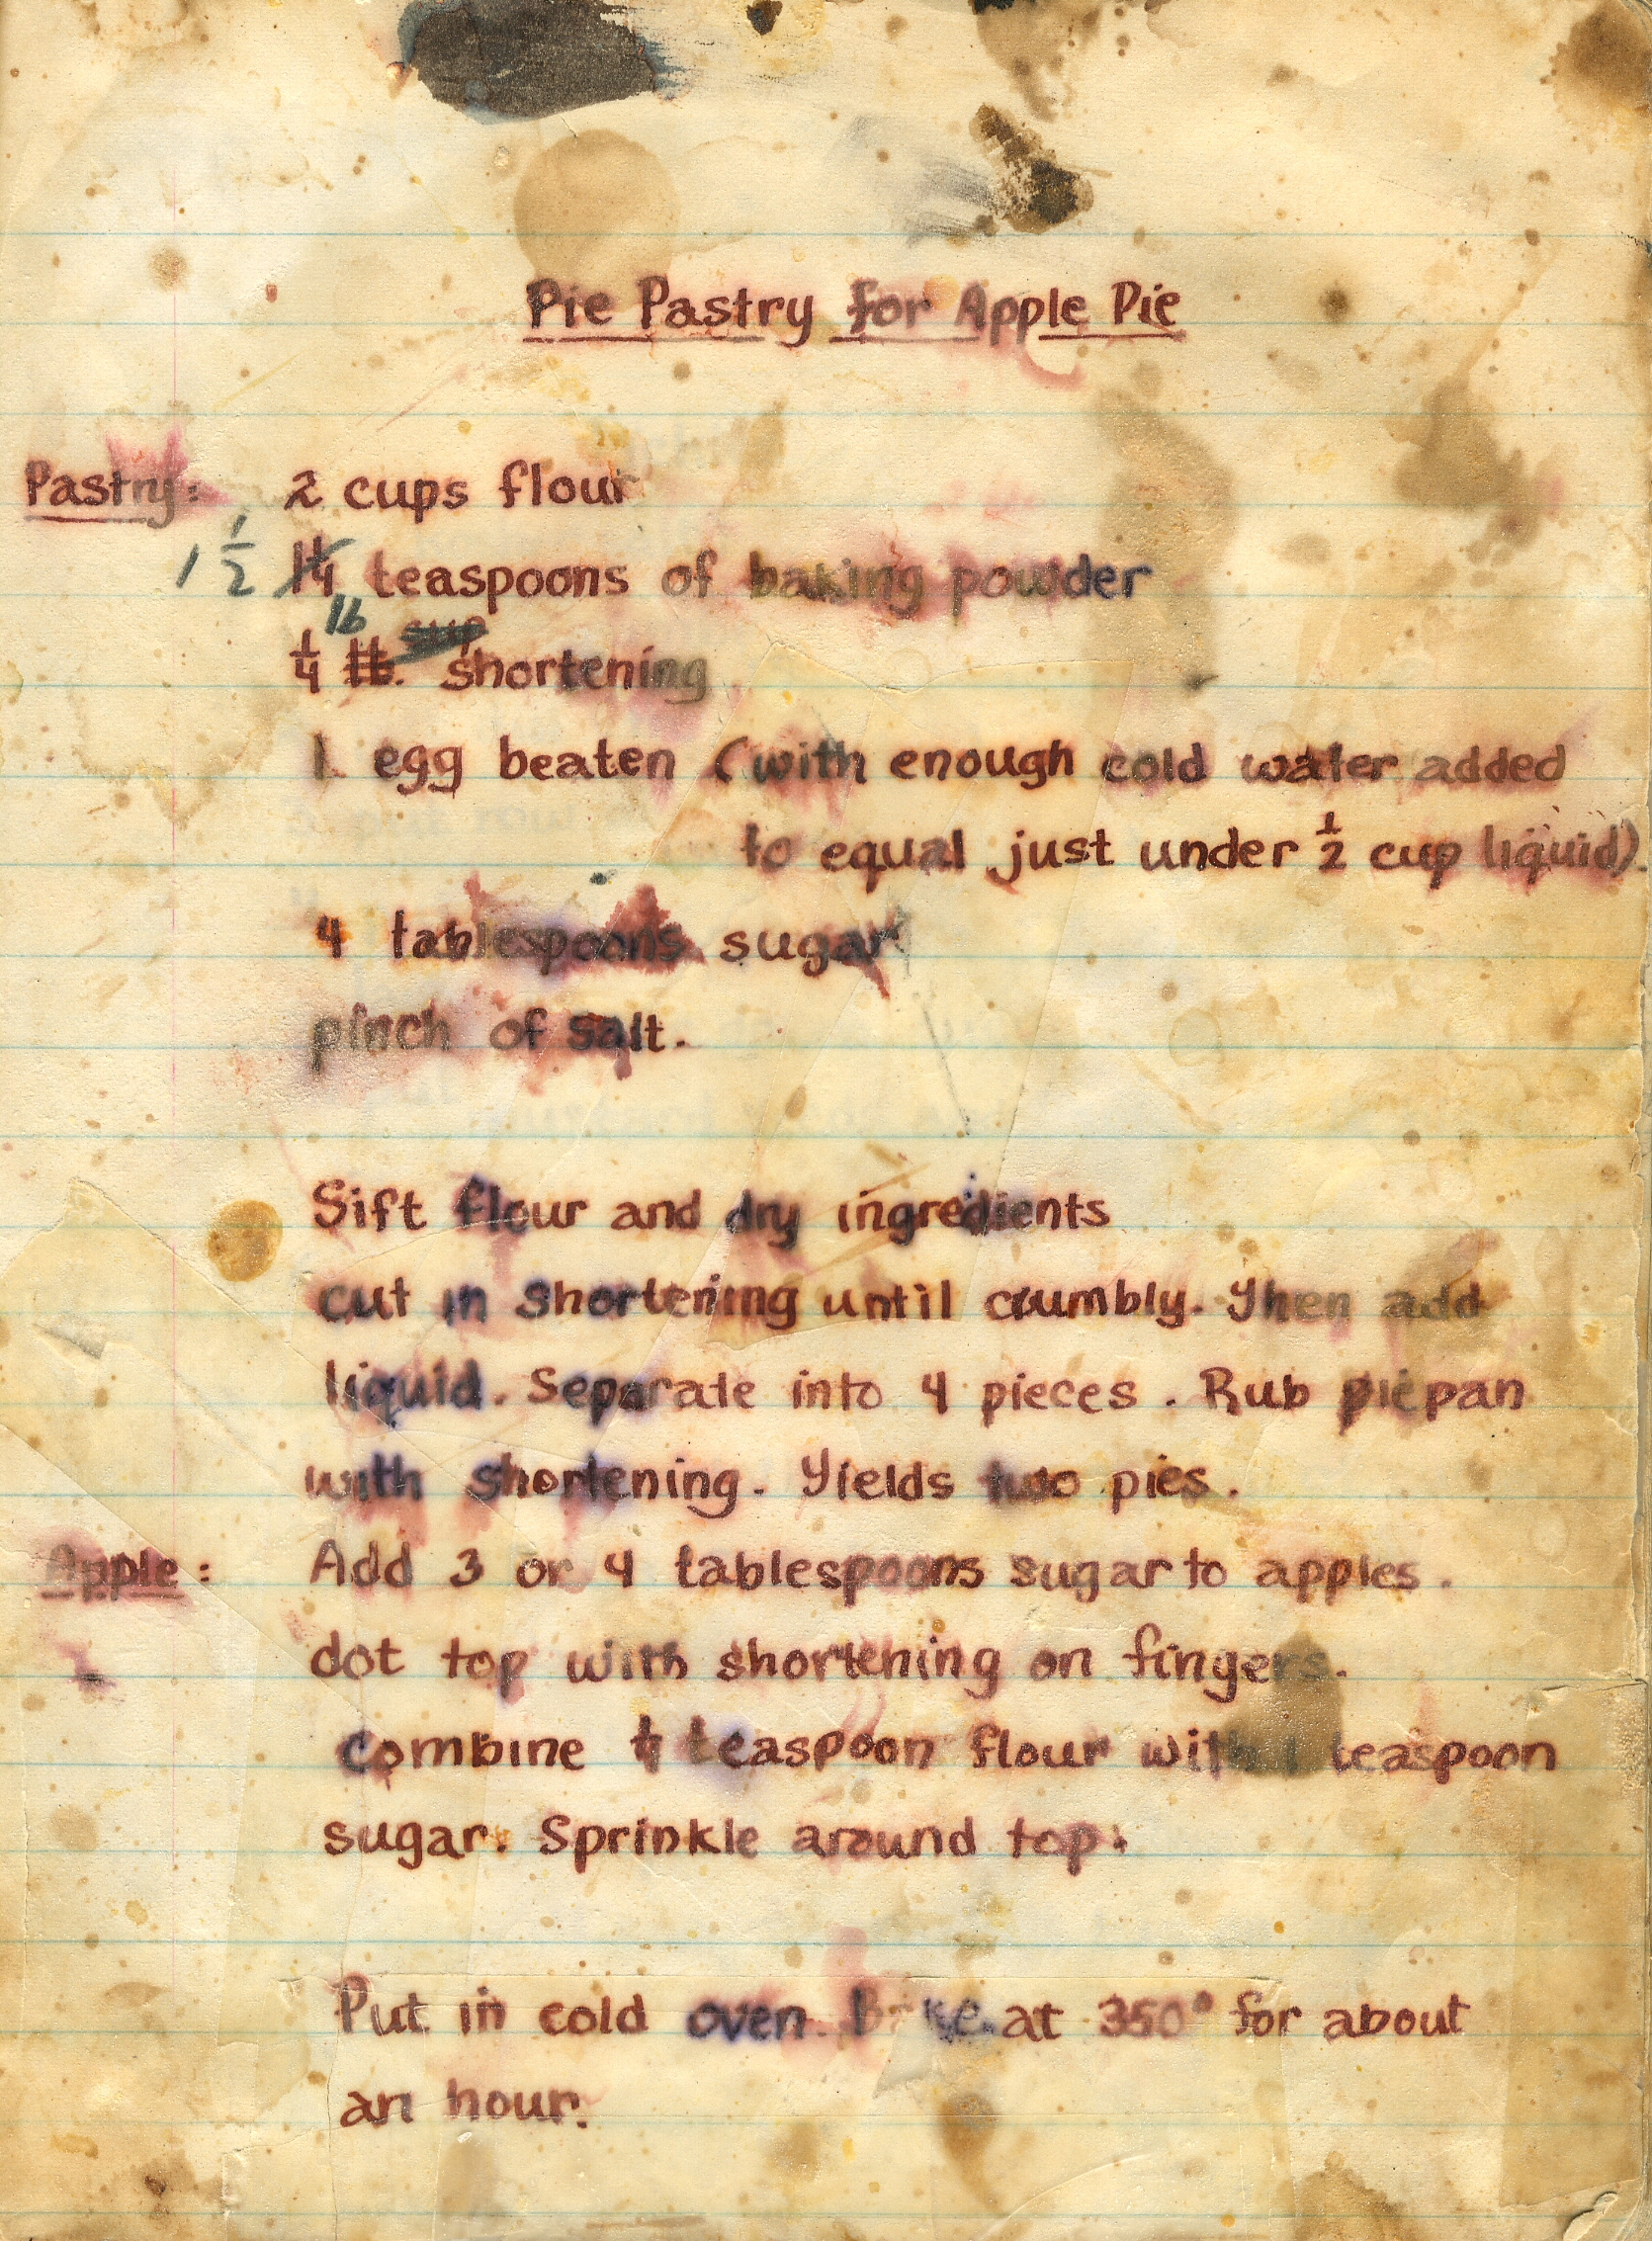 Pie Pastry for Apple Pie
Pastry: 2 cups flour
1 1/2 1 1/4 teaspoons of baking powder
lb cup
1/4 lb. shortening
1 egg beaten (with enough cold water added
to equal just under 1/2 cup liquid).
4 tablespoons sugar
pinch of salt.
Sift flour and dry ingredients
cut in shortening until crumbly. Then add
liquid. Separate into 4 pieces. Rub pie pan
with shortening. Yields two pies.
Apple: Add 3 or 4 tablespoons sugar to apples.
dot top with shortening on fingers.
combine 1/4 teaspoon flour with 1 teaspoon
sugar. Sprinkle around top.
Put in cold oven. Bake at 350° for about
an hour.